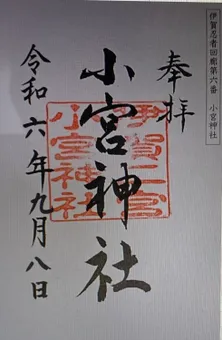 伊賀忍者回廊第六番 小宮神社
奉拝
小宮神社
伊賀二宮
小宮神社
令和六年九月八日